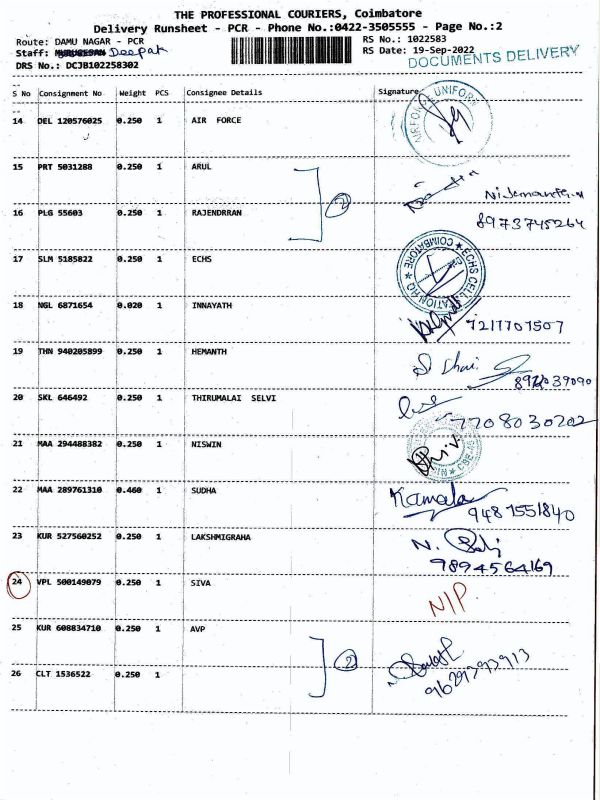 THE PROFESSIONAL COURIERS, Coimbatore
Delivery Runsheet - PCR - Phone No.:0422-3505555 - Page No.:2
Route: DAMU NAGAR - PCR
RS No.: 1022583
Staff: MURUGESAN Deepak
RS Date: 19-Sep-2022
DRS No.: DCJB102258302
DOCUMENTS DELIVERY
S No Consignment No Weight PCS Consignee Details Signature
14 DEL 120576025 0.250 1 AIR FORCE
15 PRT 5031288 0.250 1 ARUL
2
16 PLG 55603 0.250 1 RAJENDRRAN 8973745264
17 SLM 5185822 0.250 1 ECHS
COIMBATORE ★ ECHS CELL ★ STATION HQ
18 NGL 6871654 0.020 1 INNAYATH 7217701507
19 THN 940205899 0.250 1 HEMANTH
20 SKL 646492 0.250 1 THIRUMALAI SELVI 7708030202
21 MAA 294488382 0.250 1 NISWIN
22 MAA 289761310 0.460 1 SUDHA Kamala
9487551840
23 KUR 527560252 0.250 1 LAKSHMIGRAHA N.
9894564169
24 VPL 500149079 0.250 1 SIVA N/P.
25 KUR 608834710 0.250 1 AVP
2
26 CLT 1536522 0.250 1 9629393913